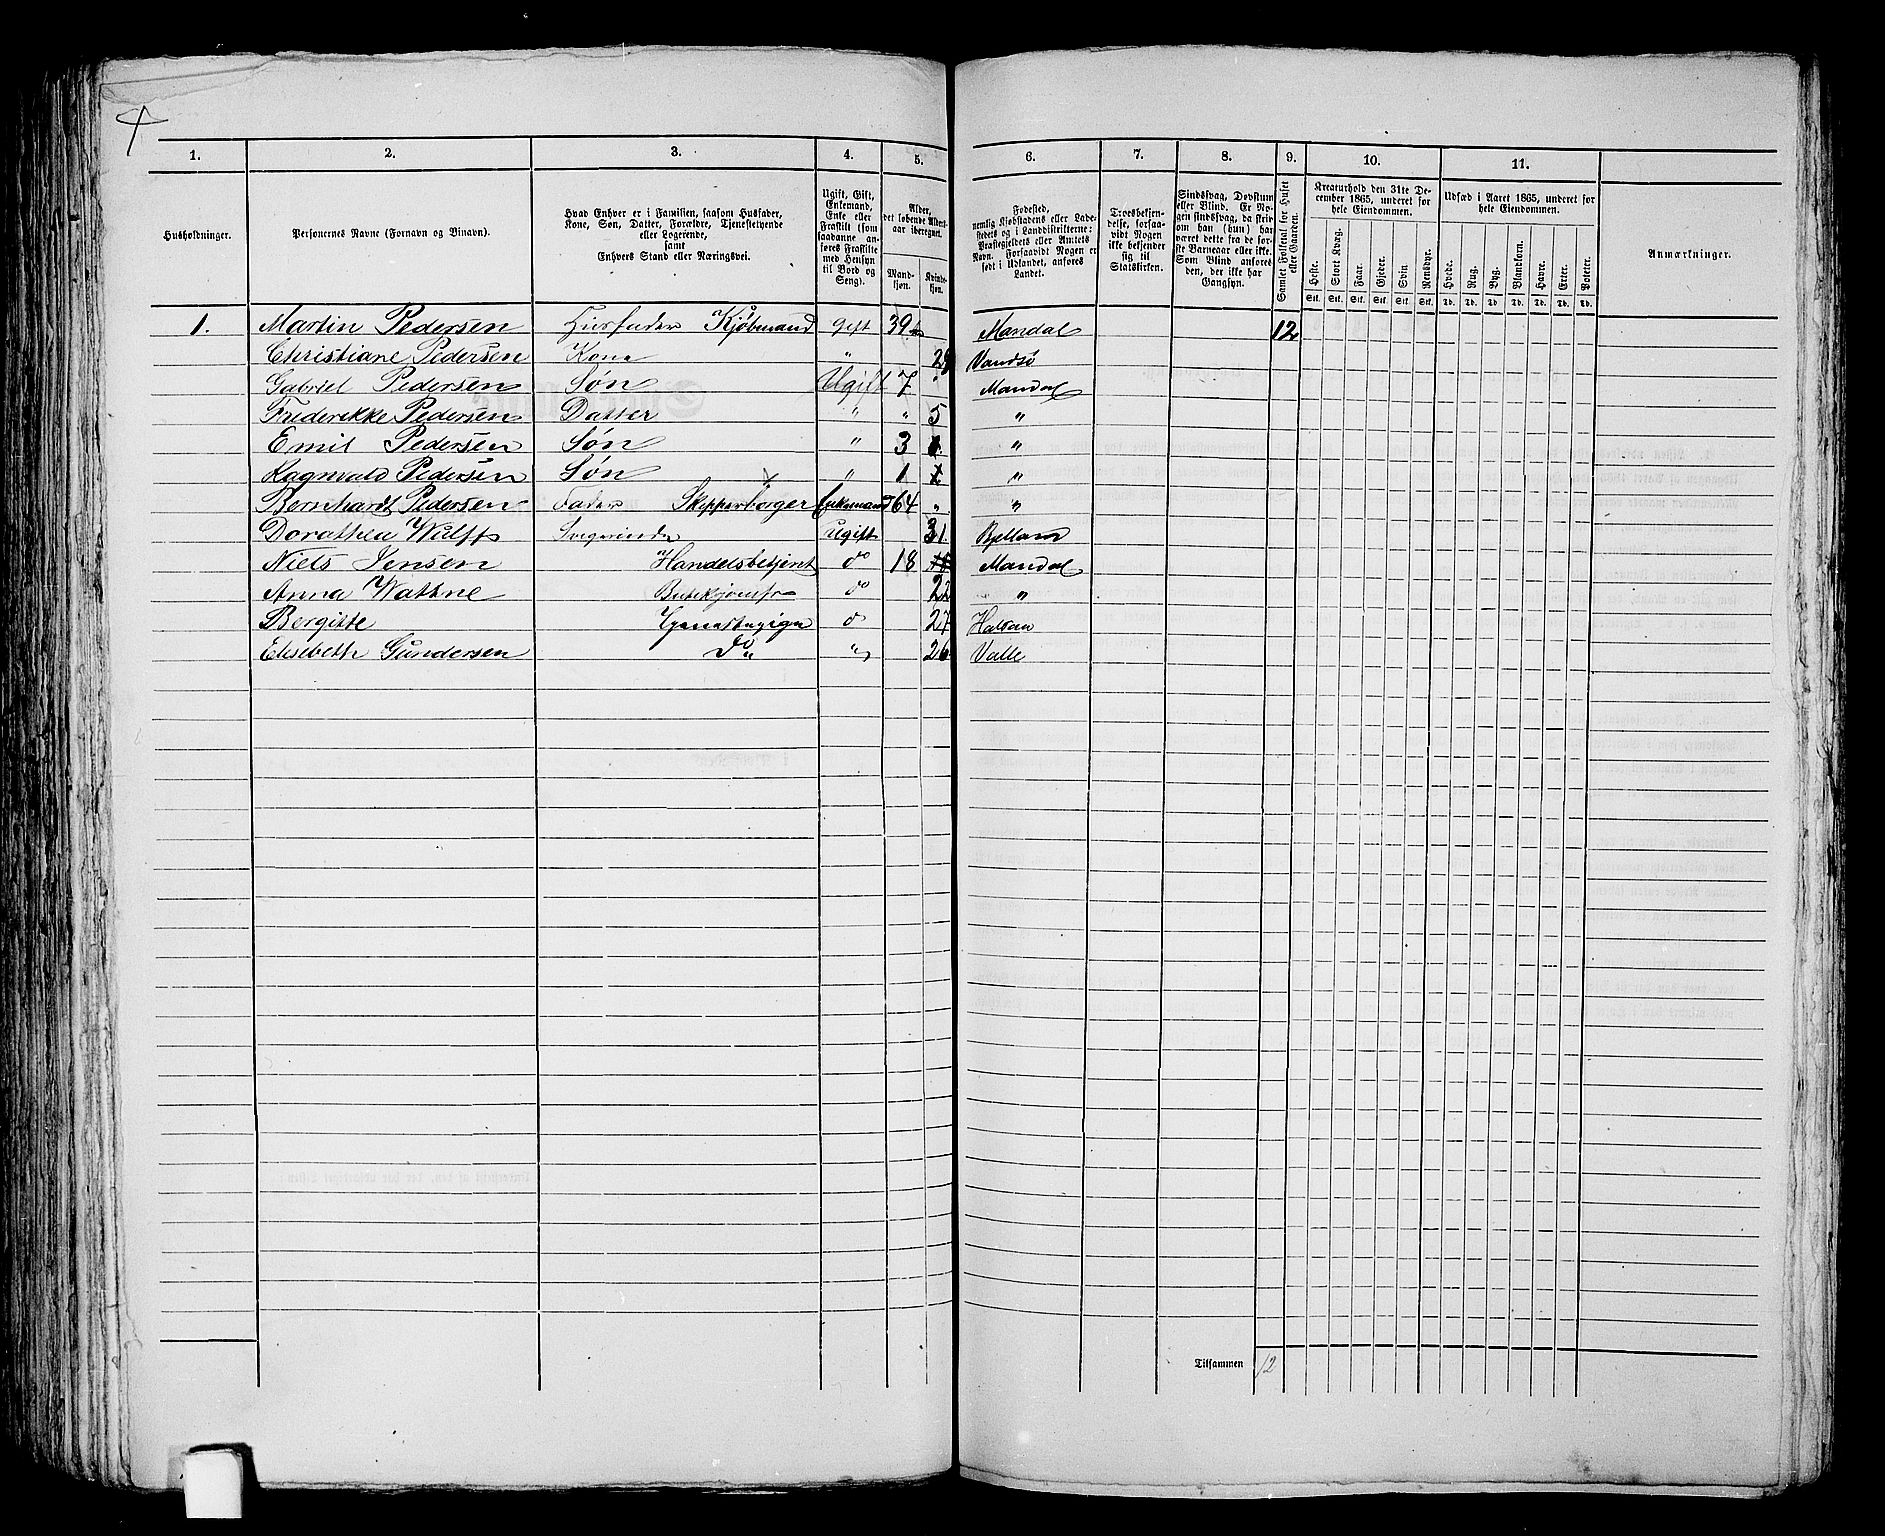 4
1. 2. 3. 4. 5. 6. 7. 8. 9. 10. 11.
Husholdninger.
Personernes Navne (Fornavn og Binavn).
Hvad Enhver er i Familien, saasom Husfader,
Kone, Søn, Datter, Forældre, Tjenestetyende
eller Logerende,
samt
Enhvers Stand eller Næringsvei.
Ugift, Gift,
Enkemand,
Enke eller
Fraskilt (som
saadanne an-
føres Fraskilte
med Hensyn
til Bord og
Seng).
Alder,
det løbende Alders-
aar iberegnet.
Mand-
kjøn.
Kvinde-
kjøn.
Fødested,
nemlig Kjøbstadens eller Lade-
stedets og i Landdistrikterne:
Præstegjeldets eller Amtets
Navn. Forsaavidt Nogen er
født i Udlandet, anføres
Landet.
Troesbekjen-
delse, forsaa-
vidt Nogen
ikke bekjender
sig til
Statskirken.
Sindssvag, Døvstum
eller Blind. Er No-
gen sindssvag, da skriv
om han (hun) har
været dette fra de før-
ste Barneaar eller ikke.
Som Blind anføres
den, der ikke har
Gangsyn.
Samlet Folketal for Huset
eller Gaarden.
Kreaturhold den 31te De-
cember 1865, underet for
hele Eiendommen.
Heste. Stort Kvæg. Faar. Gjeder. Svin. Rensdyr.
Stk. Stk. Stk. Stk. Stk. Stk.
Udsæd i Aaret 1865, underet for
hele Eiendommen.
Hvede. Rug. Byg. Blandkorn. Havre. Erter. Poteter.
Td. Td. Td. Td. Td. Td. Td.
Anmærkninger.
1. Martin Pedersen Husfader Kjøbmand gift 39 Mandal 12
Christiane Pedersen Kone " 29 Vandsø
Gabriel Pedersen Søn Ugift 7 " Mandal
Frederikke Pedersen Datter " " 5 "
Emil Pedersen Søn " 3 "
Ragnvald Pedersen Søn " 1 "
Bernhardt Pedersen Fader Skipperborger Enkemand 64 " "
Dorothea Wulff Svigerinde Ugift 31. Bjelland
Niels Jensen Handelsbetjent do 18 Mandal
Anna Wattne do 22 "
Bergitte Tjenestepige do 27 Halsaa
Elisebeth Gundersen Do " 26 Valle
Tilsammen 12